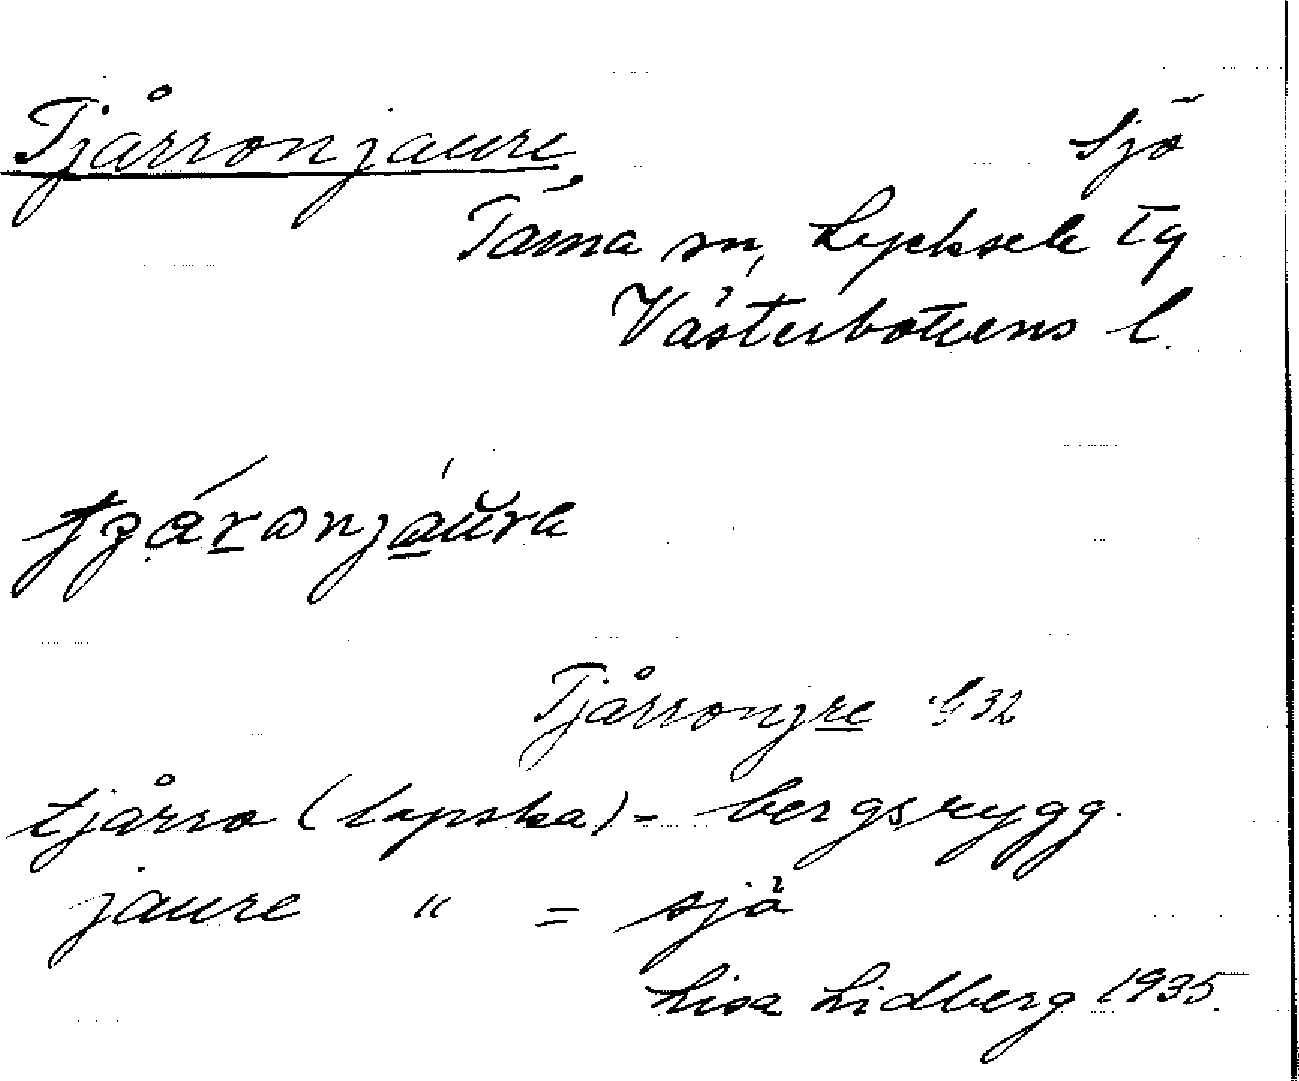 Tjårronjaure, sjö
Tärna sn, Lycksele tg
Västerbottens l.
Tjårronjre 32
tjårro (lapska) = bergsrygg.
jaure " = sjö
Lisa Lidberg 1935.